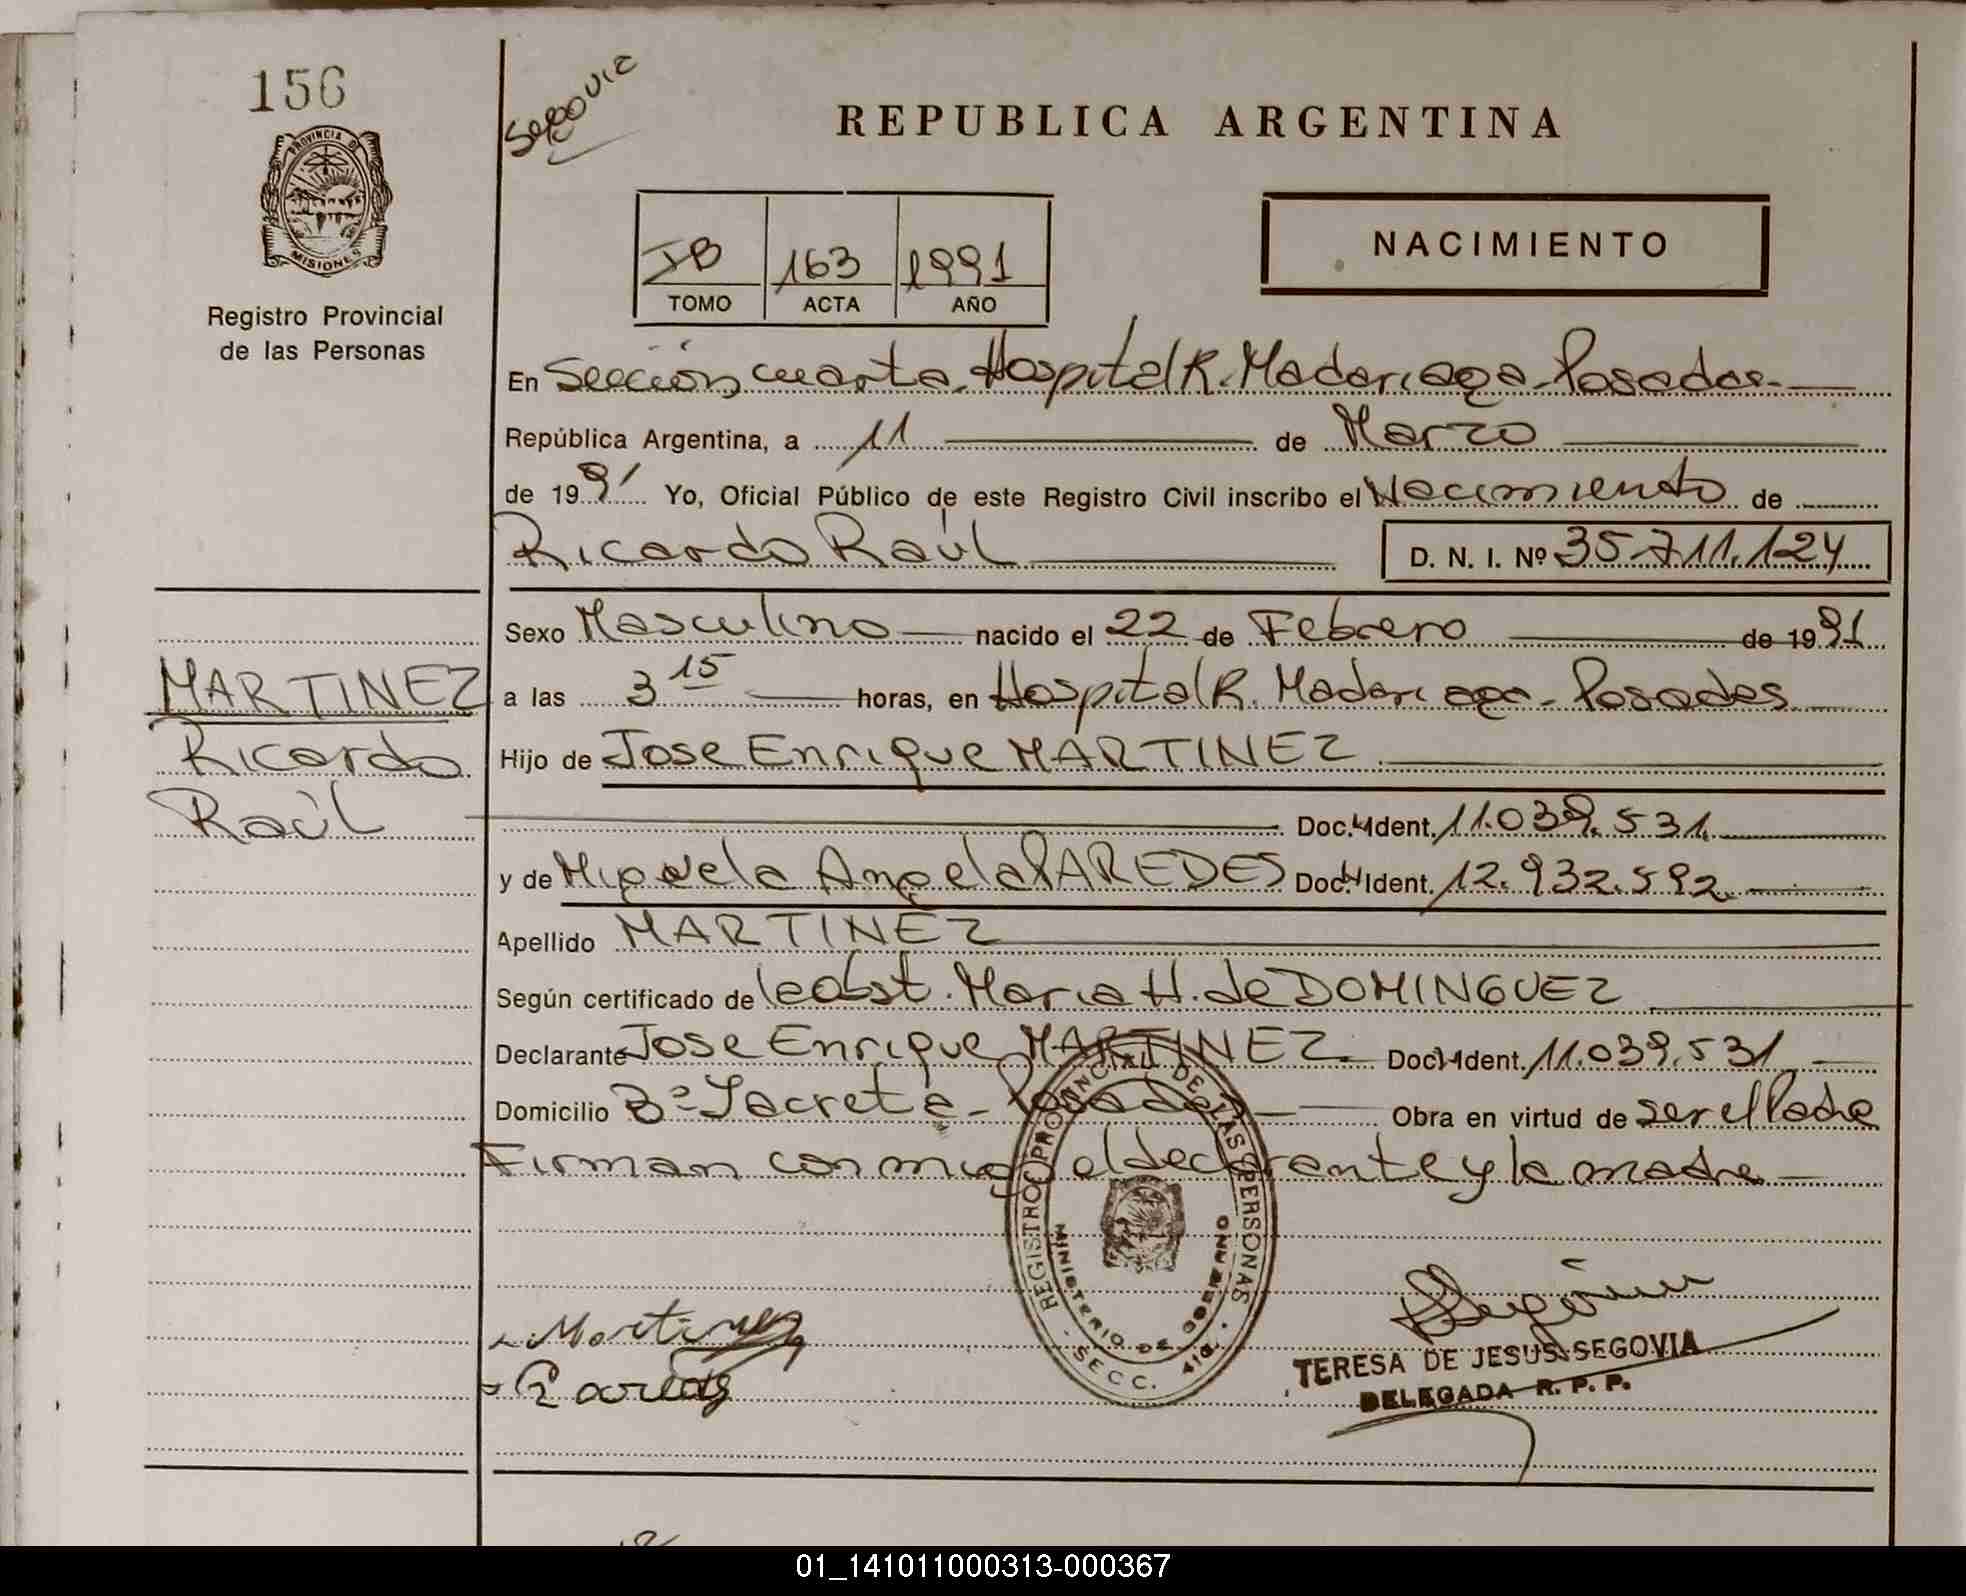 156
Segovia
PROVINCIA DE
MISIONES
Registro Provincial
de las Personas
REPUBLICA ARGENTINA
IB 163 1991
TOMO ACTA AÑO
NACIMIENTO
En Sección cuarta. Hospital R. Madariaga - Posadas.
República Argentina, a 11 de Marzo
de 1991 Yo, Oficial Público de este Registro Civil inscribo el Nacimiento de
Ricardo Raúl D. N. I. Nº 35.711.124
Sexo Masculino nacido el 22 de Febrero de 1991
MARTINEZ
Ricardo
Raúl
a las 3 15 horas, en Hospital R. Madariaga - Posadas
Hijo de Jose Enrique MARTINEZ
Doc. Ident. 11.039.531.
y de Miguela Angela PAREDES Doc. Ident. 12.932.592.
Apellido MARTINEZ
Según certificado de la obst. Maria H. de DOMINGUEZ
Declarante Jose Enrique MARTINEZ Doc. Ident. 11.039.531
Domicilio Bº Sacreta - Posadas Obra en virtud de ser el Padre
Firman conmigo el declarante y la madre
REGISTRO PROVINCIAL DE LAS PERSONAS
MINISTERIO DE GOBIERNO
SECC. 4ta.
Martinez
TERESA DE JESUS SEGOVIA
DELEGADA R. P. P.
01_141011000313-000367